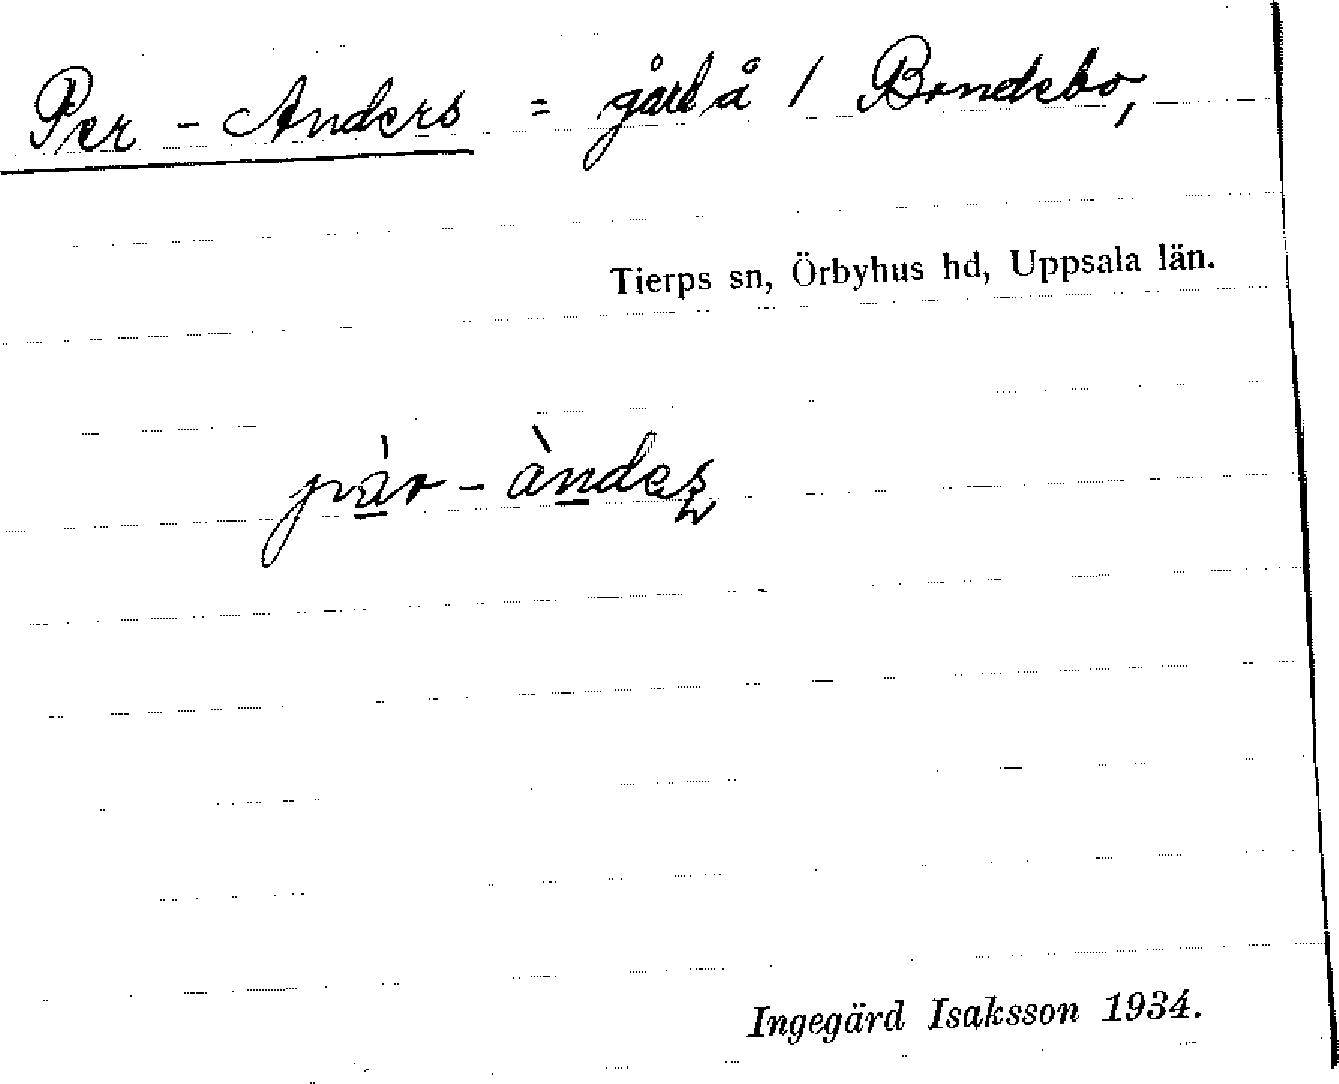 Per-Anders = gård å 1 Bondebo,
Tierps sn, Örbyhus hd, Uppsala län.
pär-àndeʂ
Ingegärd Isaksson 1934.